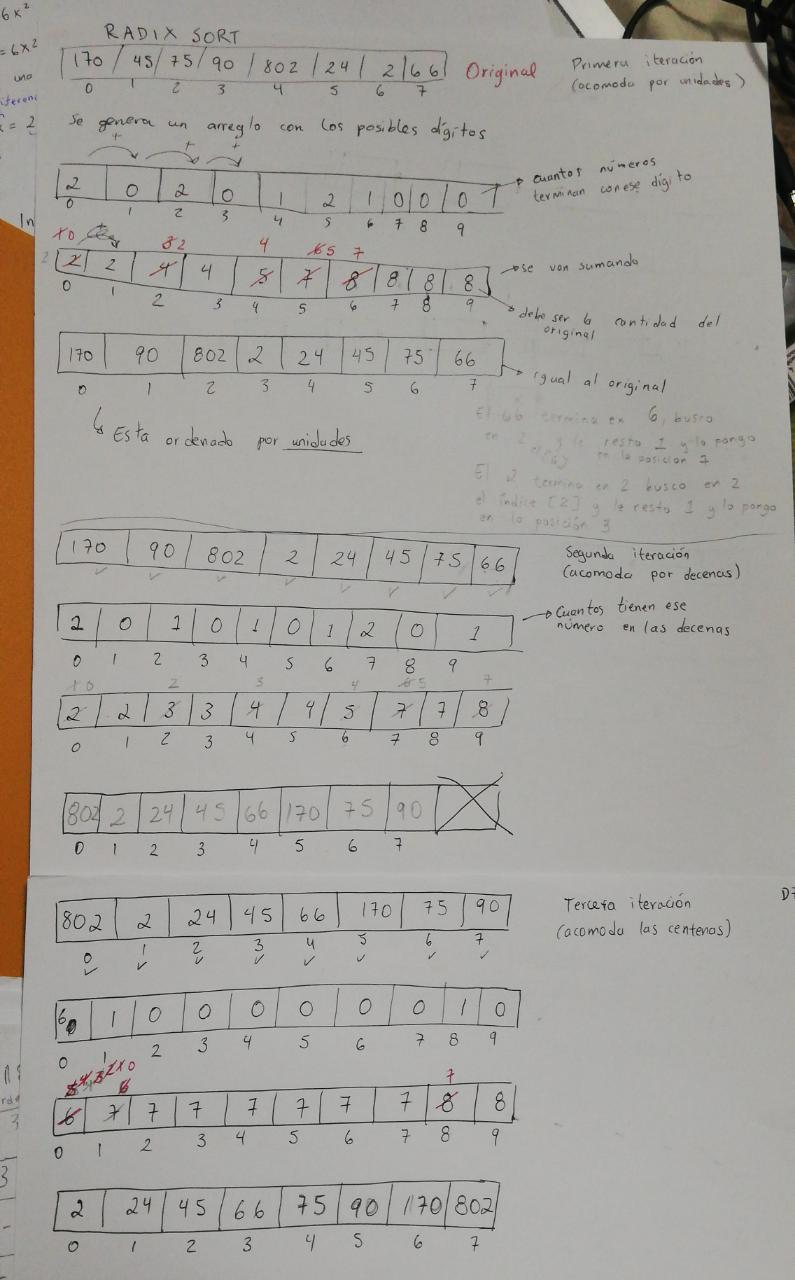 6x²
= 6x²
RADIX SORT
170 45 75 90 802 24 2 66 Original
0 1 2 3 4 5 6 7
Primera iteración
(acomoda por unidades)
Se genera un arreglo con los posibles dígitos
+ + +
2 0 2 0 1 2 1 0 0 0
0 1 2 3 4 5 6 7 8 9
cuantos números
terminan con ese dígito
1 0 3 2 4 6 5 7
2 2 4 4 5 7 8 8 8 8
0 1 2 3 4 5 6 7 8 9
se van sumando
debe ser la cantidad del
original
170 90 802 2 24 45 75 66
0 1 2 3 4 5 6 7
igual al original
Esta ordenado por unidades
El 66 termina en 6, busco
en y le resto 1 y lo pongo
en la posición 7
El 2 termina en 2 busco en 2
el índice [2] y le resto 1 y lo pongo
en la posición 3
170 90 802 2 24 45 75 66
Segunda iteración
(acomoda por decenas)
2 0 1 0 1 0 1 2 0 1
0 1 2 3 4 5 6 7 8 9
Cuantos tienen ese
número en las decenas
1 0 2 3 4 6 5 7
2 2 3 3 4 4 5 7 7 8
0 1 2 3 4 5 6 7 8 9
802 2 24 45 66 170 75 90
0 1 2 3 4 5 6 7
802 2 24 45 66 170 75 90
0 1 2 3 4 5 6 7
Tercera iteración
(acomoda las centenas)
6 1 0 0 0 0 0 0 1 0
0 1 2 3 4 5 6 7 8 9
5 4 3 2 1 0 6 7
6 7 7 7 7 7 7 7 8 8
0 1 2 3 4 5 6 7 8 9
2 24 45 66 75 90 170 802
0 1 2 3 4 5 6 7